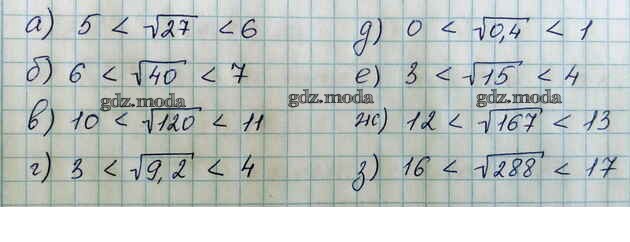 а) 5 < √27 < 6
б) 6 < √40 < 7
в) 10 < √120 < 11
г) 3 < √9,2 < 4
д) 0 < √0,4 < 1
е) 3 < √15 < 4
ж) 12 < √167 < 13
з) 16 < √288 < 17
gdz.moda
gdz.moda
gdz.moda